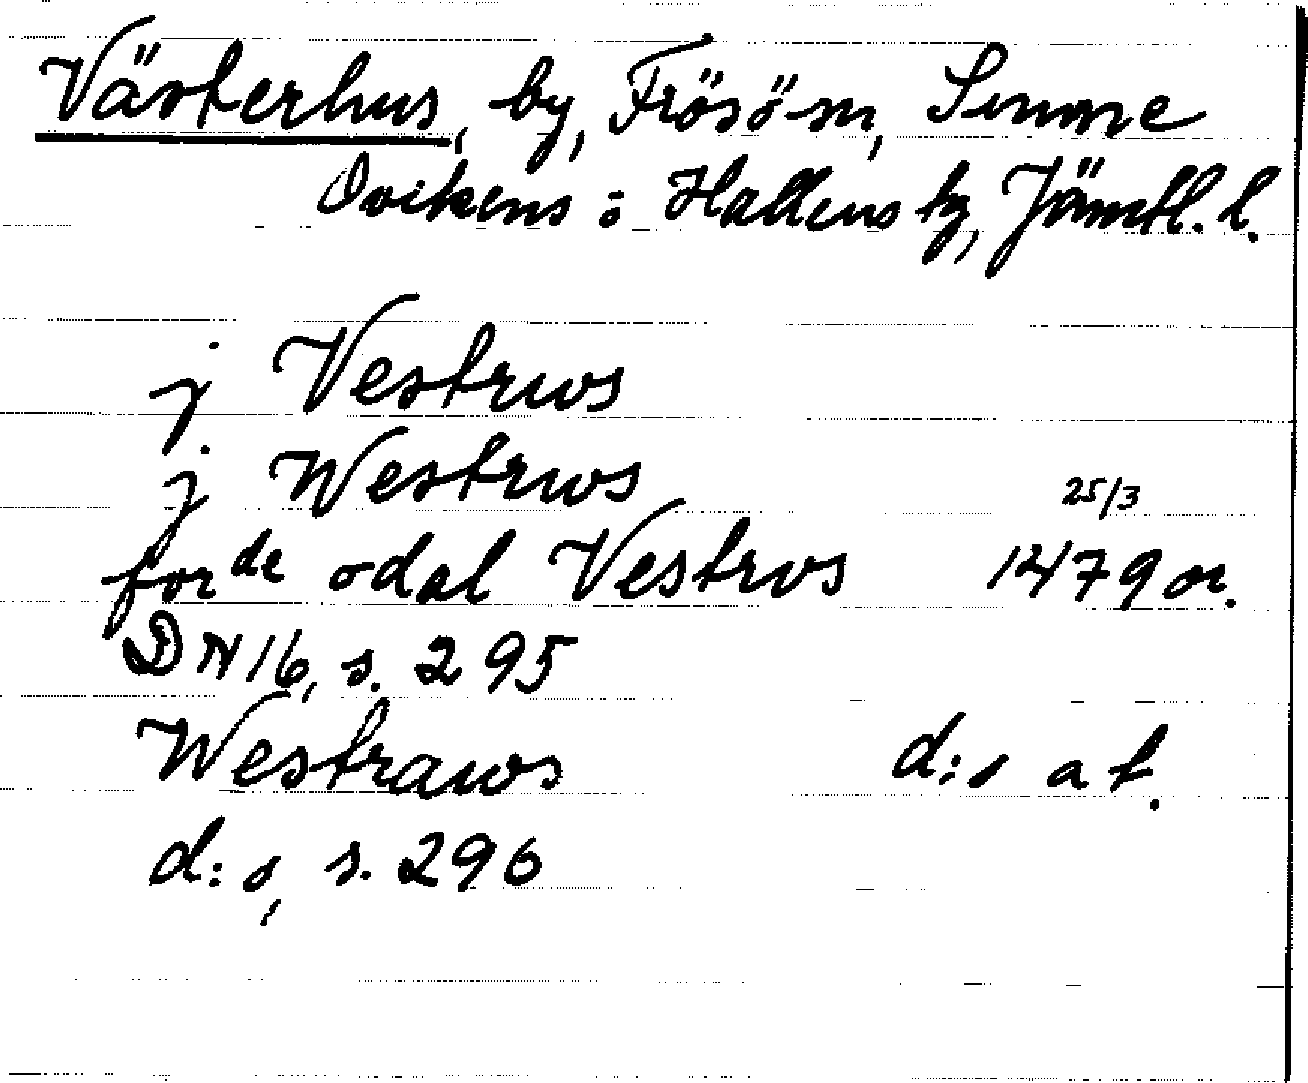 Västerhus, by, Frösö sn, Sunne
Ovikens o Hallens tg, Jämtl. l.
j Vestrws
j. Westrws
for de odal Vestrvs 25/3 1479 or.
DN 16, s. 295
Westraws d:s a t.
d:s, s. 296